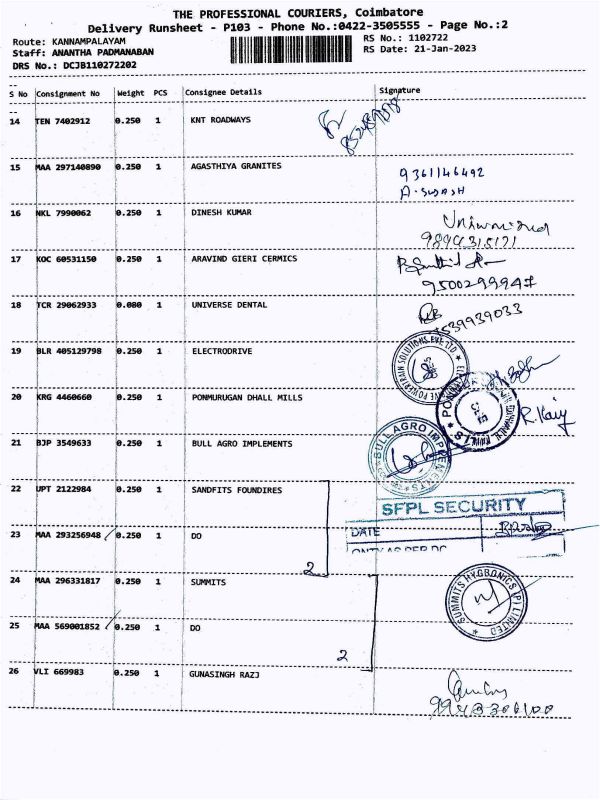 THE PROFESSIONAL COURIERS, Coimbatore
Delivery Runsheet - P103 - Phone No.:0422-3505555 - Page No.:2
Route: KANNAMPALAYAM RS No.: 1102722
Staff: ANANTHA PADMANABAN RS Date: 21-Jan-2023
DRS No.: DCJB110272202
S No Consignment No Weight PCS Consignee Details Signature
14 TEN 7402912 0.250 1 KNT ROADWAYS
15 MAA 297140890 0.250 1 AGASTHIYA GRANITES 9361146492
16 NKL 7990062 0.250 1 DINESH KUMAR
9894315121
17 KOC 60531150 0.250 1 ARAVIND GIERI CERMICS
9500299947
18 TCR 29062933 0.080 1 UNIVERSE DENTAL
19 BLR 405129798 0.250 1 ELECTRODRIVE
20 KRG 4460660 0.250 1 PONMURUGAN DHALL MILLS
21 BJP 3549633 0.250 1 BULL AGRO IMPLEMENTS BULL AGRO IMPLEMENTS
22 UPT 2122984 0.250 1 SANDFITS FOUNDIRES
SFPL SECURITY
23 MAA 293256948 0.250 1 DO DATE
2
24 MAA 296331817 0.250 1 SUMMITS SUMMITS HYGRONICS (P) LIMITED
25 MAA 569001852 0.250 1 DO
2
26 VLI 669983 0.250 1 GUNASINGH RAZJ